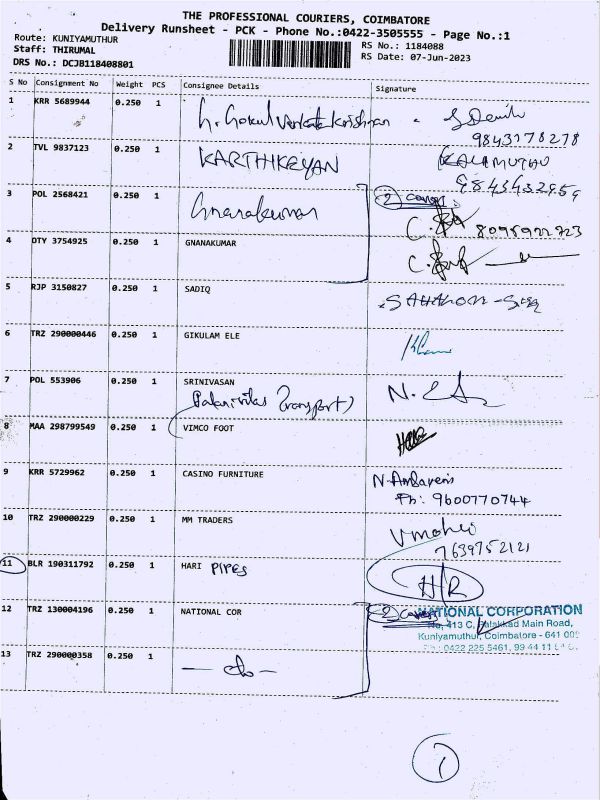 THE PROFESSIONAL COURIERS, COIMBATORE
Delivery Runsheet - PCK - Phone No.:0422-3505555 - Page No.:1
Route: KUNIYAMUTHUR
RS No.: 1184088
Staff: THIRUMAL
RS Date: 07-Jun-2023
DRS No.: DCJB118408801
S No Consignment No Weight PCS Consignee Details Signature
1 KRR 5689944 0.250 1
9843178278
2 TVL 9837123 0.250 1 KARTHIKEYAN
KALAMUTHU
3 POL 2568421 0.250 1 Gnanakumar
2 covers
4 DTY 3754925 0.250 1 GNANAKUMAR
5 RJP 3150827 0.250 1 SADIQ
6 TRZ 290000446 0.250 1 GIKULAM ELE
7 POL 553906 0.250 1 SRINIVASAN
8 MAA 298799549 0.250 1 VIMCO FOOT
9 KRR 5729962 0.250 1 CASINO FURNITURE
Ph: 9600770744
10 TRZ 290000229 0.250 1 MM TRADERS
7639752121
11 BLR 190311792 0.250 1 HARI PIPES
12 TRZ 130004196 0.250 1 NATIONAL COR
2 covers
NATIONAL CORPORATION
No, 413 C, Palakkad Main Road,
Kuniyamuthur, Coimbatore - 641 008
13 TRZ 290000358 0.250 1 - do -
Ph : 0422 225 5461, 99 44 11
1